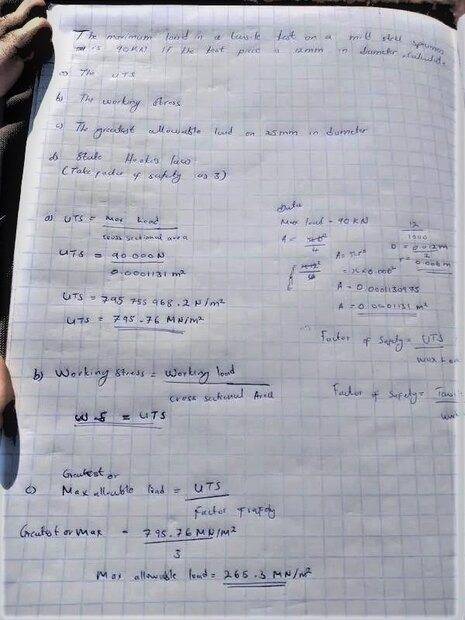 The maximum load in a tensile test on a mild steel specimen
is 90KN if the test piece is 12mm in diameter, Calculate.
a) The UTS
b) The working stress
c) The greatest allowable load on 25mm in diameter
d) State Hooke's law.
(Take factor of safety as 3)
a) UTS = Max Load
cross sectional area
UTS = 90.000N
0.0001131 m²
UTS = 795 755 968.2 N/m²
UTS = 795.76 MN/m²
Data
Max load = 90KN
A =
4
12
1000
D = 0.012m
2
r = 0.006m
A = πr²
= π x 0.006²
A = 0.0001130975
A = 0.0001131 m²
Factor of Safety = UTS
b) Working Stress = Working load
cross sectional Area
W.S = UTS
Factor of Safety =
c) Greatest or
Max allowable load = UTS
Factor of safety
Greatest or Max = 795.76 MN/m²
3
Max allowable load = 265.3 MN/m²